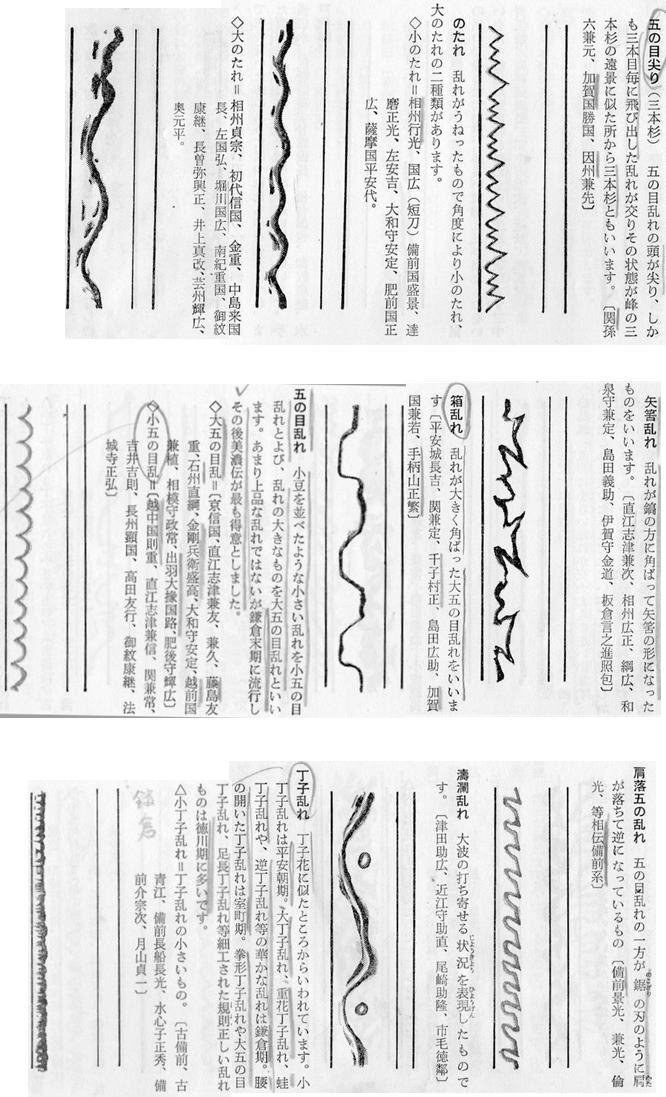 五の目尖り（三本杉）　五の目乱れの頭が尖り、しか
も三本目毎に飛び出した乱れが交りその状態が峰の三
本杉の遠景に似た所から三本杉ともいいます。〔関孫
六兼元、加賀国勝国、因州兼先〕
のたれ　乱れがうねったもので角度により小のたれ、
大のたれの二種類があります。
◇小のたれ＝相州行光、国広（短刀）備前国盛景、達
磨正光、左安吉、大和守安定、肥前国正
広、薩摩国平安代。
◇大のたれ＝相州貞宗、初代信国、金重、中島来国
長、左国弘、堀川国広、南紀重国、御紋
康継、長曽弥興正、井上真改、芸州輝広、
奥元平。
矢筈乱れ　乱れが鎬の方に角ばって矢筈の形になった
ものをいいます。〔直江志津兼次、相州広正、綱広、和
泉守兼定、島田義助、伊賀守金道、板倉言之進照包〕
箱乱れ　乱れが大きく角ばった大五の目乱れをいいま
す〔平安城長吉、関兼定、千子村正、島田広助、加賀
国兼若、手柄山正繁〕
五の目乱れ　小豆を並べたような小さい乱れを小五の目
乱れとよび、乱れの大きなものを大五の目乱れといい
ます。あまり上品な乱れではないが鎌倉末期に流行し
その後美濃伝が最も得意としました。
◇大五の目乱＝〔京信国、直江志津兼友、兼久、藤島友
重、石州直綱、金剛兵衛盛高、大和守安定、越前国
兼植、相模守政常、出羽大掾国路、肥後守輝広〕
◇小五の目乱＝〔越中国則重、直江志津兼信、関兼常、
吉井吉則、長州顕国、高田友行、御紋康継、法
城寺正弘〕
肩落五の乱れ　五の目乱れの一方が鋸の刃のように肩
が落ちて逆になっているもの〔備前景光、兼光、倫
光、等相伝備前系〕
濤瀾乱れ　大波の打ち寄せる状況を表現したもので
す。〔津田助広、近江守助直、尾崎助隆、市毛徳鄰〕
丁子乱れ　丁子花に似たところからいわれています。小
丁子乱れは平安朝期。大丁子乱れ、重花丁子乱れ、蛙
丁子乱れや、逆丁子乱れ等の華かな乱れは鎌倉期。腰
の開いた丁子乱れは室町期。拳形丁子乱れや大五の目
丁子乱れ、足長丁子乱れ等細工された規則正しい乱れ
ものは徳川期に多いです。
△小丁子乱れ＝丁子乱れの小さいもの。〔古備前、古
青江、備前長船長光、水心子正秀、備
前介宗次、月山貞一〕
鎌倉